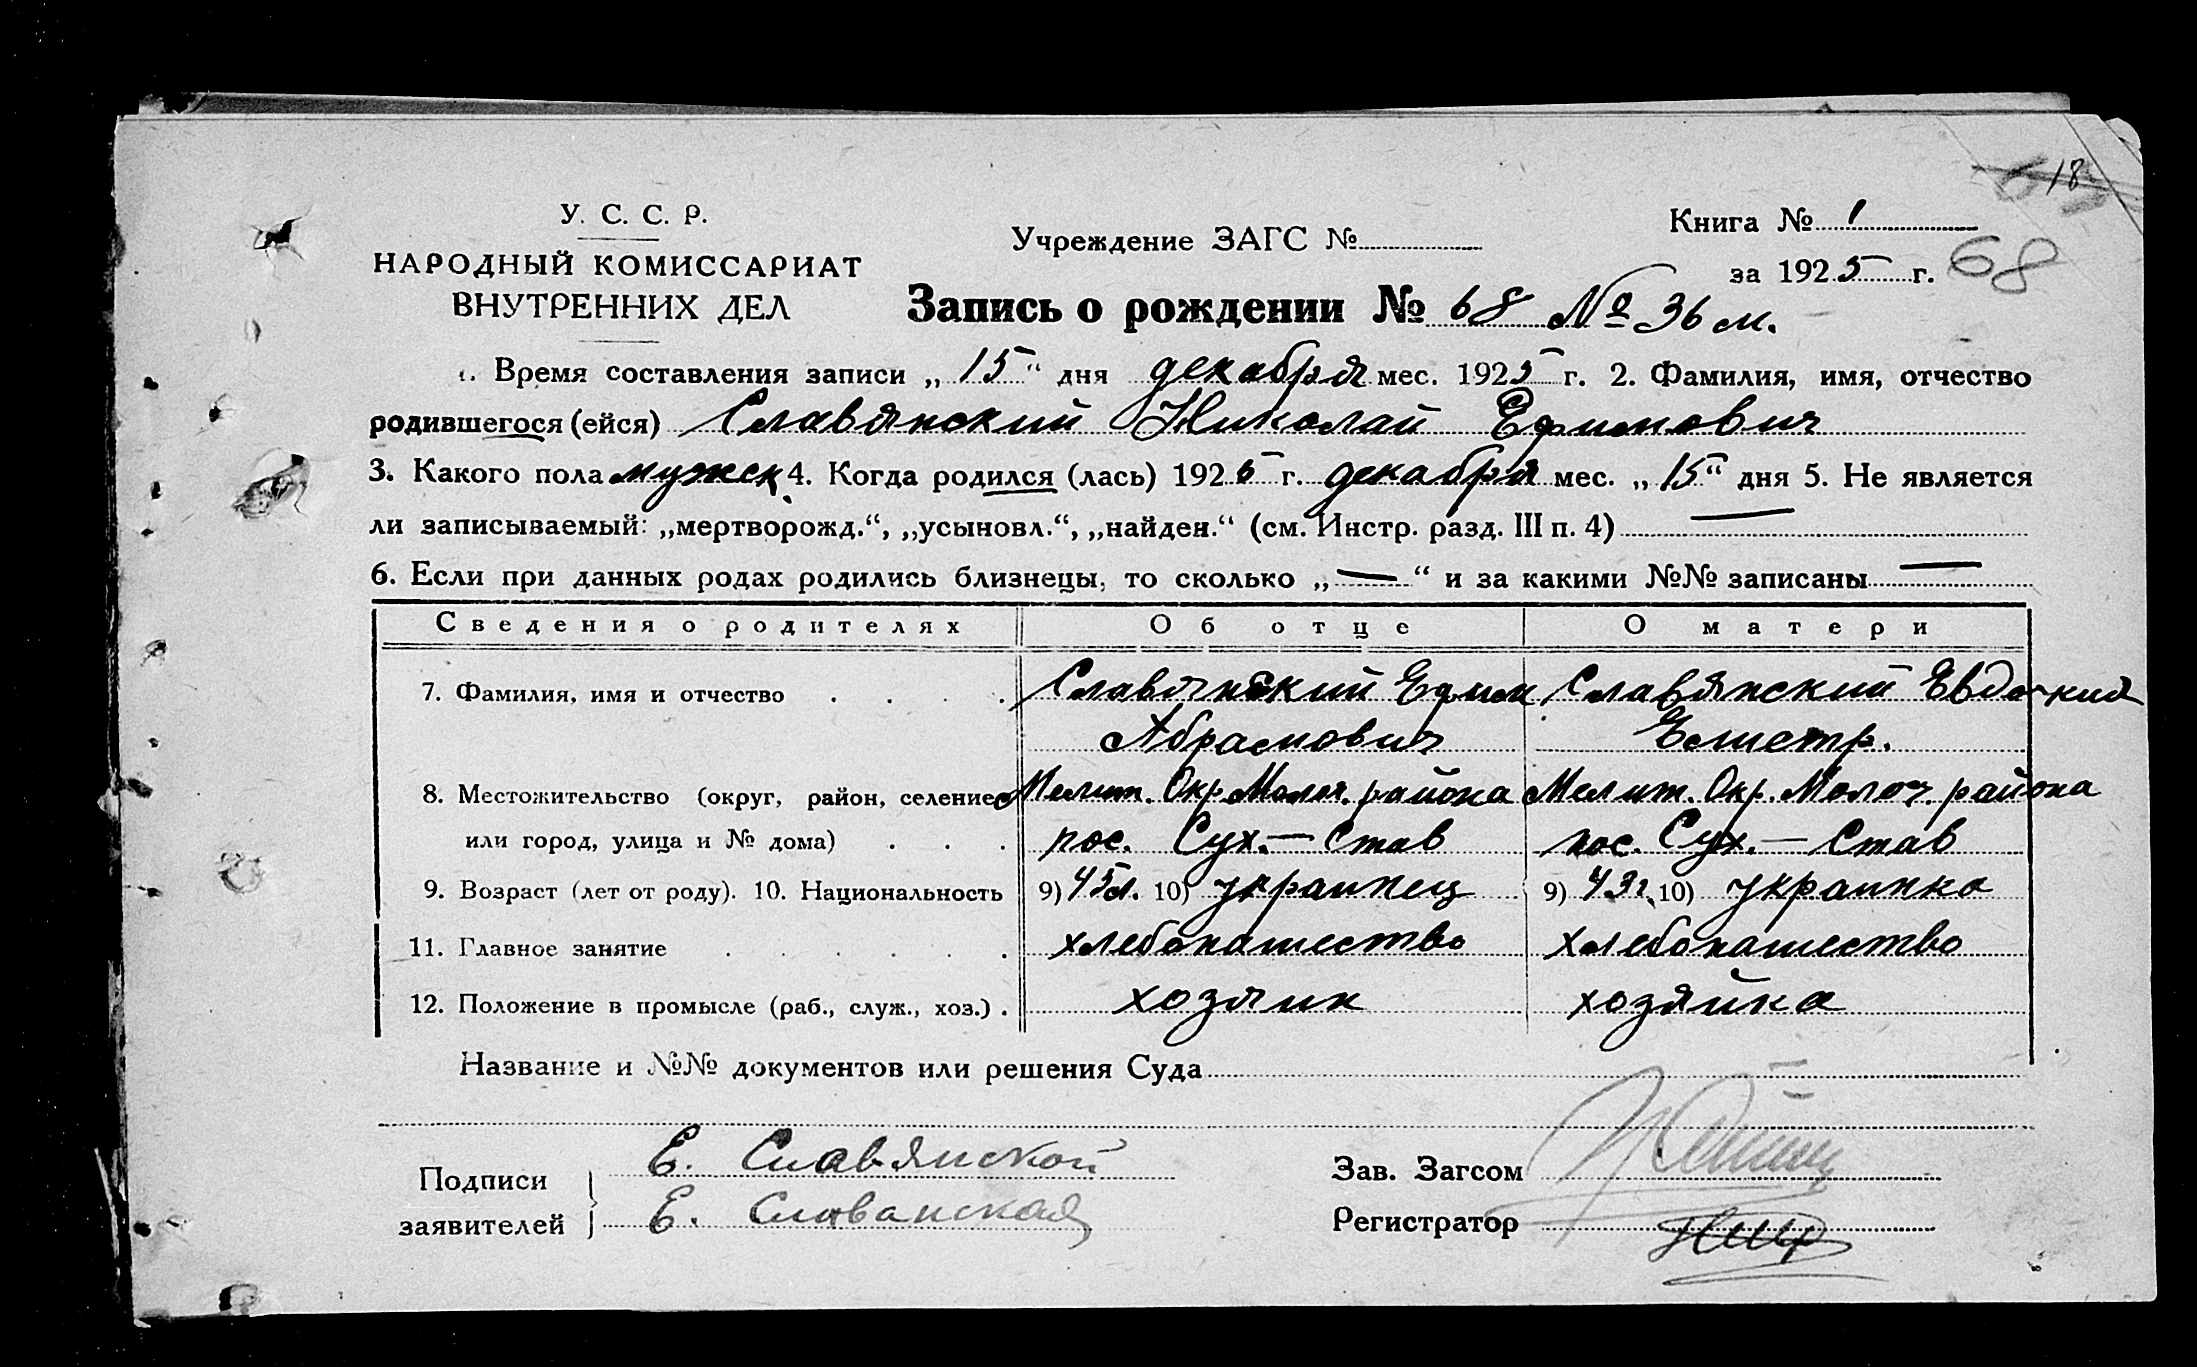 18
У. С. С. Р.
НАРОДНЫЙ КОМИССАРИАТ
ВНУТРЕННИХ ДЕЛ
Учреждение ЗАГС №
Книга № 1
за 1925 г. 68
Запись о рождении № 68 № 36 м.
1. Время составления записи „15“ дня декабря мес. 1925 г. 2. Фамилия, имя, отчество
родившегося (ейся) Славянский Николай Ефимович
3. Какого пола мужск. 4. Когда родился (лась) 1925 г. декабря мес. „15“ дня 5. Не является
ли записываемый: „мертворожд.“, „усыновл.“, „найден.“ (см. Инстр. разд. III п. 4) —
6. Если при данных родах родились близнецы, то сколько „—“ и за какими №№ записаны —
Сведения о родителях Об отце О матери
7. Фамилия, имя и отчество Славянский Ефим Славянский Евдокия
Абрамович Елистр.
8. Местожительство (округ, район, селение Мелит. Окр. Молоч. района Мелит. Окр. Молоч. района
или город, улица и № дома) пос. Сух. — Став пос. Сух. — Став
9. Возраст (лет от роду). 10. Национальность 9) 45 л. 10) украинец 9) 43 г. 10) украинка
11. Главное занятие хлебопашество хлебопашество
12. Положение в промысле (раб., служ., хоз.) хозяин хозяйка
Название и №№ документов или решения Суда
Подписи
заявителей
Е. Славянской
Е. Славанская
Зав. Загсом
Регистратор